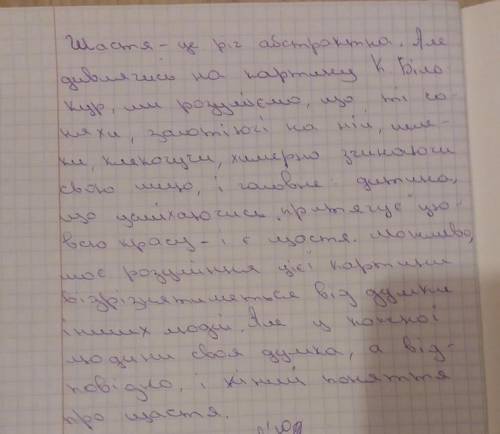 Щастя - це річ абстрактна. Але
дивлячись на картину К. Біло-
кур, ми розуміємо, що ті со-
няхи, золотіючі на ній, леле-
ки, клекочучи, химерно згинаючи
свою шию, і головне - дитина,
що усміхаючись, "притягує" цю
всю красу - і є щастя. Можливо,
моє розуміння цієї картини
відрізнятиметься від думки
інших людей. Але у кожної
людини своя думка, а від-
повідно, і кінний поняття
про щастя.